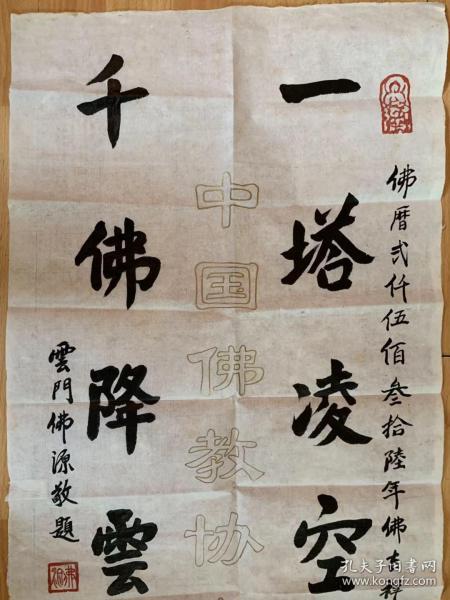 佛曆弍仟伍佰叁拾陸年佛
一塔凌空
中国佛教协
千佛降雲
雲門佛源敬題
孔夫子旧书网
kongfz.com